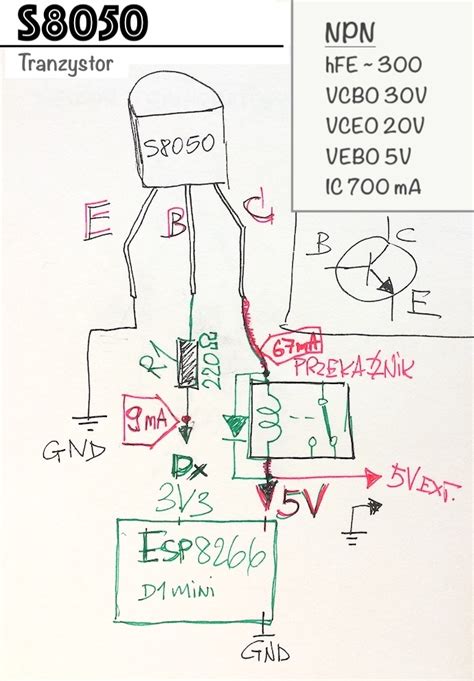 S8050
Tranzystor
NPN
hFE ~ 300
VCBO 30V
VCEO 20V
VEBO 5V
IC 700 mA
S8050
E B C
B C E
R1 220Ω
67mA
PRZEKAŹNIK
9mA
GND
Dx
3V3
5V
5V EXT.
ESP8266
D1 mini
GND